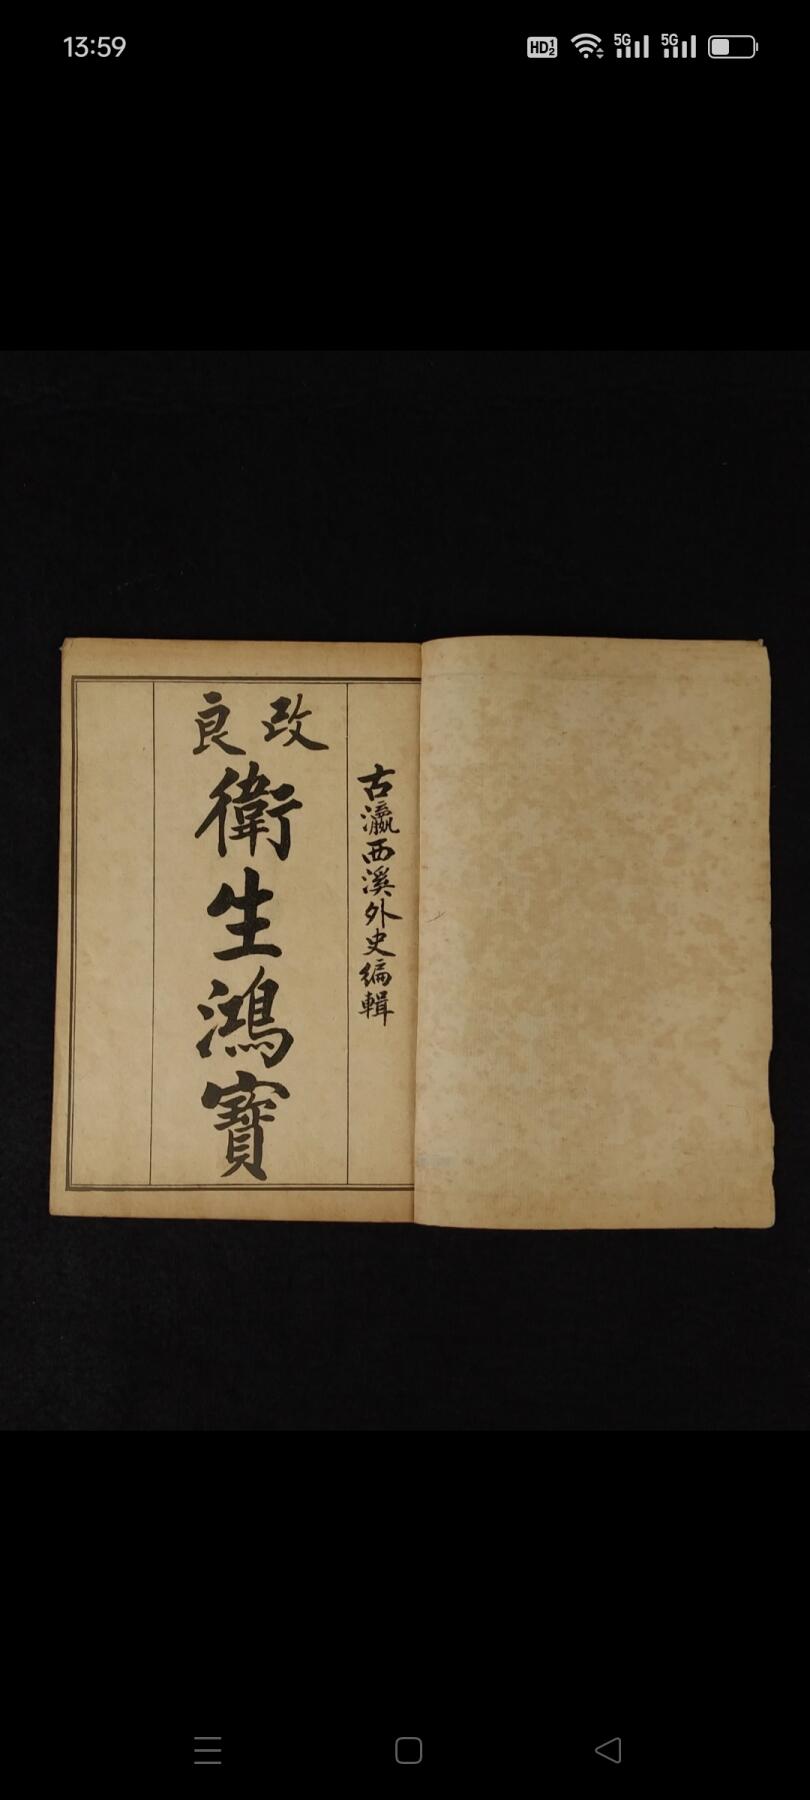 13:59
HD 1 2
5G
5G
古瀛西溪外史編輯
改良
衛生鴻寶